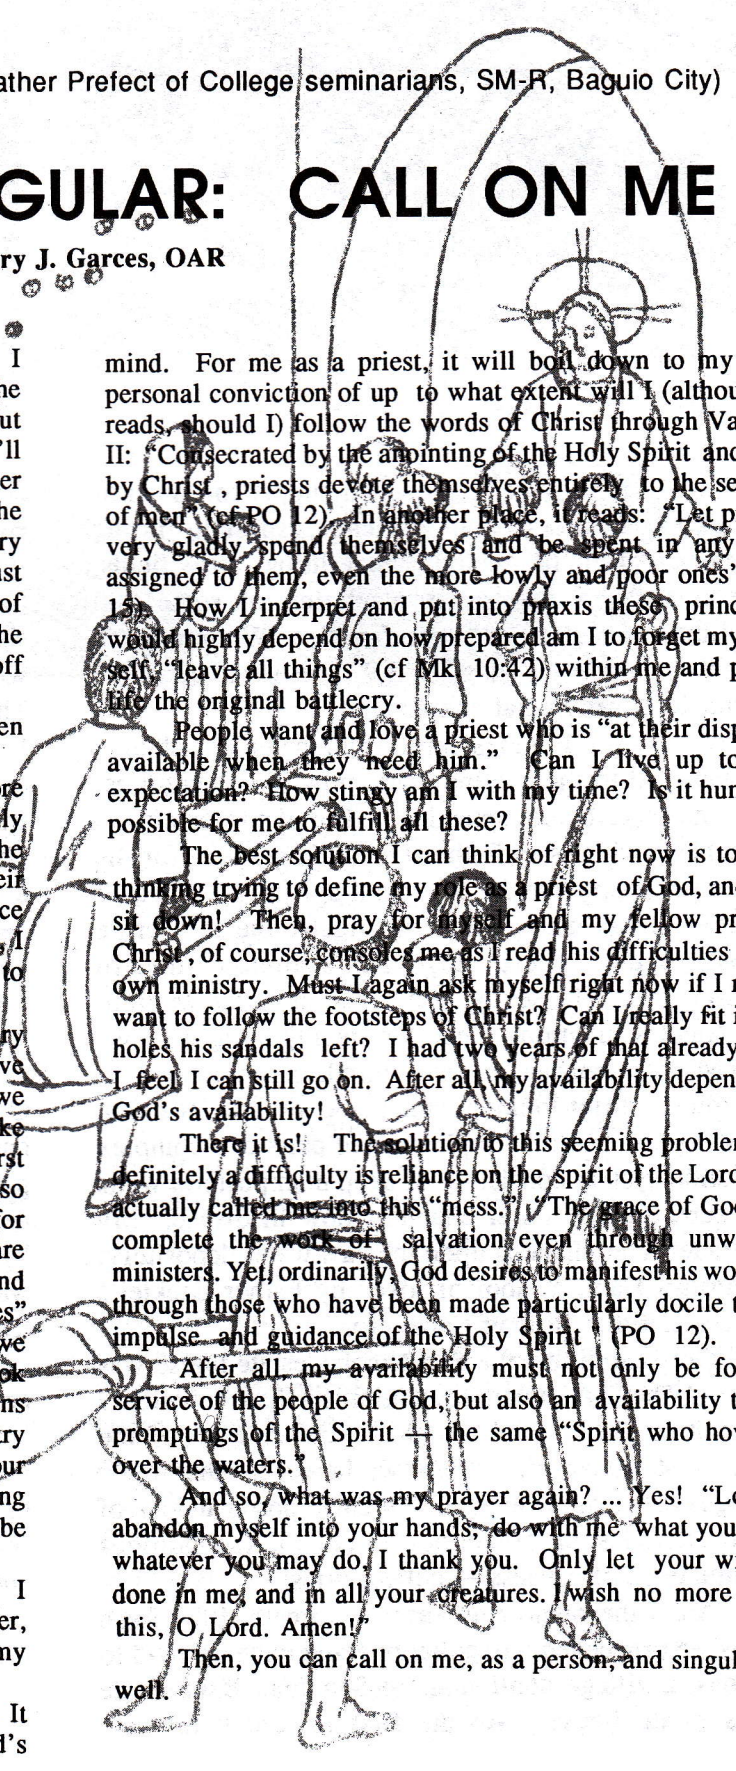 ather Prefect of College seminarians, SM-R, Baguio City)
GULAR: CALL ON ME
ry J. Garces, OAR
I
ne
ut
'll
er
he
ry
st
of
he
off
en
ore
ly,
he
eir
ce
, I
to
ry
ve
we
ke
rst
so
for
are
nd
es”
we
ok
ns
ry
our
ng
be
I
er,
my
It
d's
mind. For me as a priest, it will boil down to my
personal conviction of up to what extent will I (althou
reads, should I) follow the words of Christ through Va
II: “Consecrated by the anointing of the Holy Spirit and
by Christ , priests devote themselves entirely to the se
of men” (cf PO 12). In another place, it reads: “Let p
very gladly spend themselves and be spent in any
assigned to them, even the more lowly and poor ones”
15). How I interpret and put into praxis these princ
would highly depend on how prepared am I to forget my
self, “leave all things” (cf Mk. 10:42) within me and p
life the original battlecry.
People want and love a priest who is “at their disp
available when they need him.” Can I live up to
expectation? How stingy am I with my time? Is it hum
possible for me to fulfill all these?
The best solution I can think of right now is to
thinking trying to define my role as a priest of God, an
sit down! Then, pray for myself and my fellow pr
Christ , of course, consoles me as I read his difficulties
own ministry. Must I again ask myself right now if I r
want to follow the footsteps of Christ? Can I really fit i
holes his sandals left? I had two years of that already
I feel I can still go on. After all, my availability depen
God's availability!
There it is! The solution to this seeming problem
definitely a difficulty is reliance on the spirit of the Lord
actually called me into this “mess.” “The grace of Go
complete the work of salvation even through unw
ministers. Yet, ordinarily, God desires to manifest his wo
through those who have been made particularly docile t
impulse and guidance of the Holy Spirit ” (PO 12).
After all, my availability must not only be fo
service of the people of God, but also an availability t
promptings of the Spirit — the same “Spirit who hov
over the waters.”
And so, what was my prayer again? ... Yes! “Lo
abandon myself into your hands; do with me what you
whatever you may do, I thank you. Only let your wi
done in me, and in all your creatures. I wish no more
this, O Lord. Amen!”
Then, you can call on me, as a person, and singul
well.